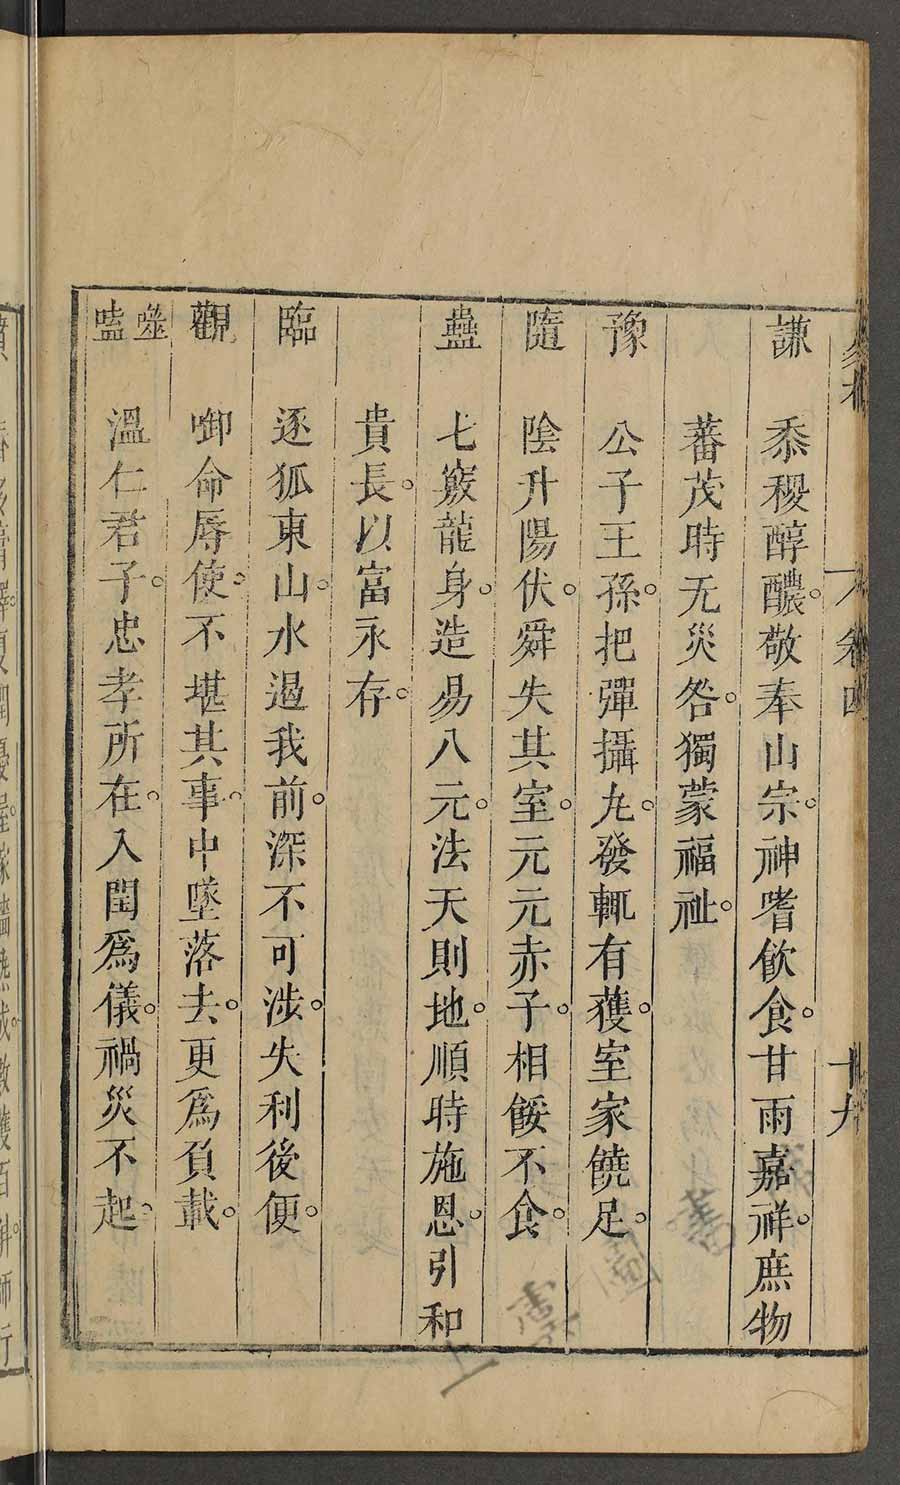 卷四
十九
謙 黍稷醇醲敬奉山宗神嗜飲食甘雨嘉祥庶物
蕃茂時无災咎獨蒙福祉
豫 公子王孫把彈攝丸發輒有獲室家饒足
隨 陰升陽伏舜失其室元元赤子相餒不食
蠱 七竅龍身造易八元法天則地順時施恩引和
貴長以富永存
臨 逐狐東山水遏我前深不可涉失利後便
觀 啣命辱使不堪其事中墜落去更爲負載
噬嗑 溫仁君子忠孝所在入閨爲儀禍災不起